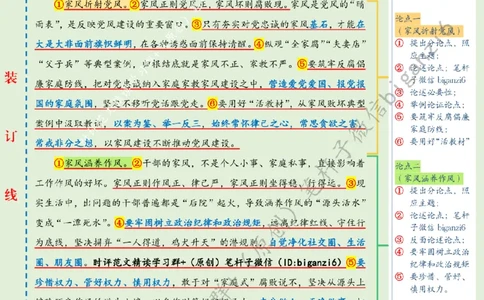 ①家风折射党风。②家风正则党风正，家风坏则腐败现，家风是党风的"晴
雨表"，是反映党风建设的重要窗口。③只有夯实对党忠诚的家风基石，才能在
大是大非面前旗帜鲜明，在各种诱惑面前保持清醒。④纵观"全家腐""夫妻店"
"父子兵"等典型案例，归根结底就是家风不正、家教不严。⑤要筑牢反腐倡
廉家庭防线，把对党忠诚纳入家庭家教家风建设之中，营造爱党爱国、报党报
国的家庭氛围，坚定不移听党话跟党走。⑥要用好"活教材"，从家风败坏典型
案例中汲取教训，以案为鉴、举一反三，始终常怀律己之心，常思贪欲之害，
常戒非分之想，以家风建设不断推动党风建设。
①家风涵养作风。②干部的家风，不是个人小事、家庭私事，直接影响着
工作作风的好坏。家风正则作风正，律己严，家风正则坐得稳、行得远。③现
实生活中，出问题的干部普遍都是"后院"起火，导致涵养作风的"源头活水"
变成"一潭死水"。④要牢固树立政治纪律和政治规矩，远离纪律红线、守住行
为底线，坚决摒弃"一人得道，鸡犬升天"的潜规则，自觉净化社交圈、生活
圈、朋友圈。时评范文精读学习群+（原创）笔杆子微信（ID:biganzi6）⑤要
珍惜权力、管好权力、慎用权力，敢于对"家庭式"腐败说不，坚决从源头上
装
订
线
论点一
（家风折射党风）
① 提出分论点，照
应主题；
② 论述论点；笔杆
子微信biganzi6
③ 论述必要性；
④ 举例论证论点；
⑤ 要筑牢反腐倡
廉家庭防线；
⑥ 要用好"活教材"
论点二
（家风涵养作风）
① 提出分论点，照
应主题；
② 论述论点；笔杆
子微信biganzi6
③ 反面论述论点；
④ 要牢固树立政
治纪律和政治规矩
⑤ 要珍惜、管好、
慎用权力，